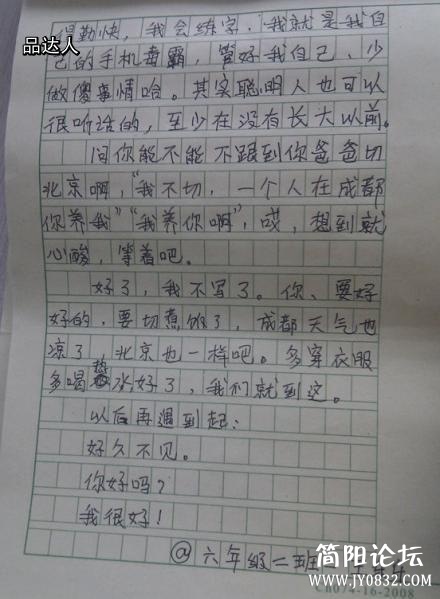 品达人
得勤快，我会练字，我就是我自
己的手机毒霸，管好我自己、少
做傻事情哈。其实聪明人也可以
很听话的，至少在没有长大以前。
问你能不能不跟到你爸爸切
北京啊，“我不切，一个人在成都
你养我”“我养你啊”，哎，想到就
心酸，等着吧。
好了，我不写了。你、要好
好的，要切煮饭了，成都天气也
凉了，北京也一样吧。多穿衣服
多喝热水好了，我们就到这。
以后再遇到起：
好久不见。
你好吗？
我很好！
@六年级二班
简阳论坛
www.jy0832.com
Ch074-16-2008